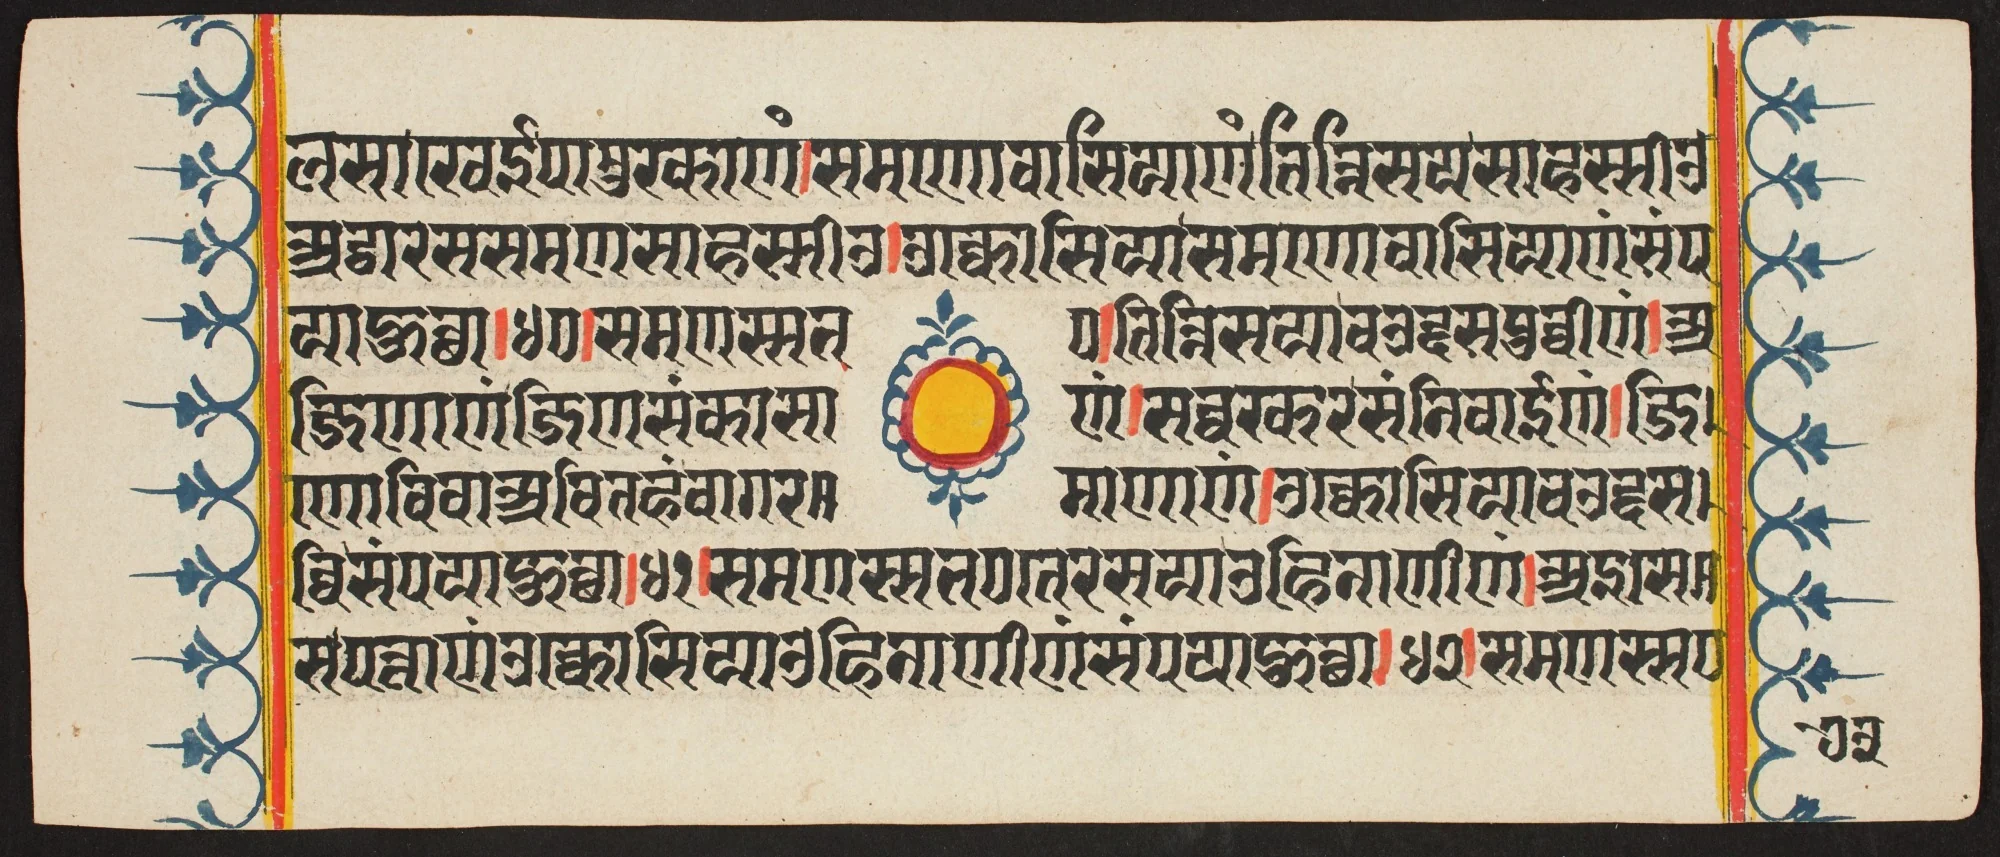 लसारेवईपामुरकाणं।समणोवासियाणंतिन्निसयसाहस्सीउ
अट्ठारससमणसाहस्सीउ।उक्कोसियासमणोवासियाणंसंप
याहुत्था।५०।समणस्सभ ०।तिन्निसयाचउद्दसपुव्वीणं।अ
जिणाणंजिणसंकासा णं।सव्वरकरसंनिवाईणं।जि
णोविवाअवितहंवागर माणाणं।उक्कोसियाचउद्दस
व्विसंपयाहुत्था।५१।समणस्सभ०तेरससयाउहिनाणीणं।अइसेस
संपन्नाणंउक्कोसियाउहिनाणीणंसंपयाहुत्था।५२।समणस्स